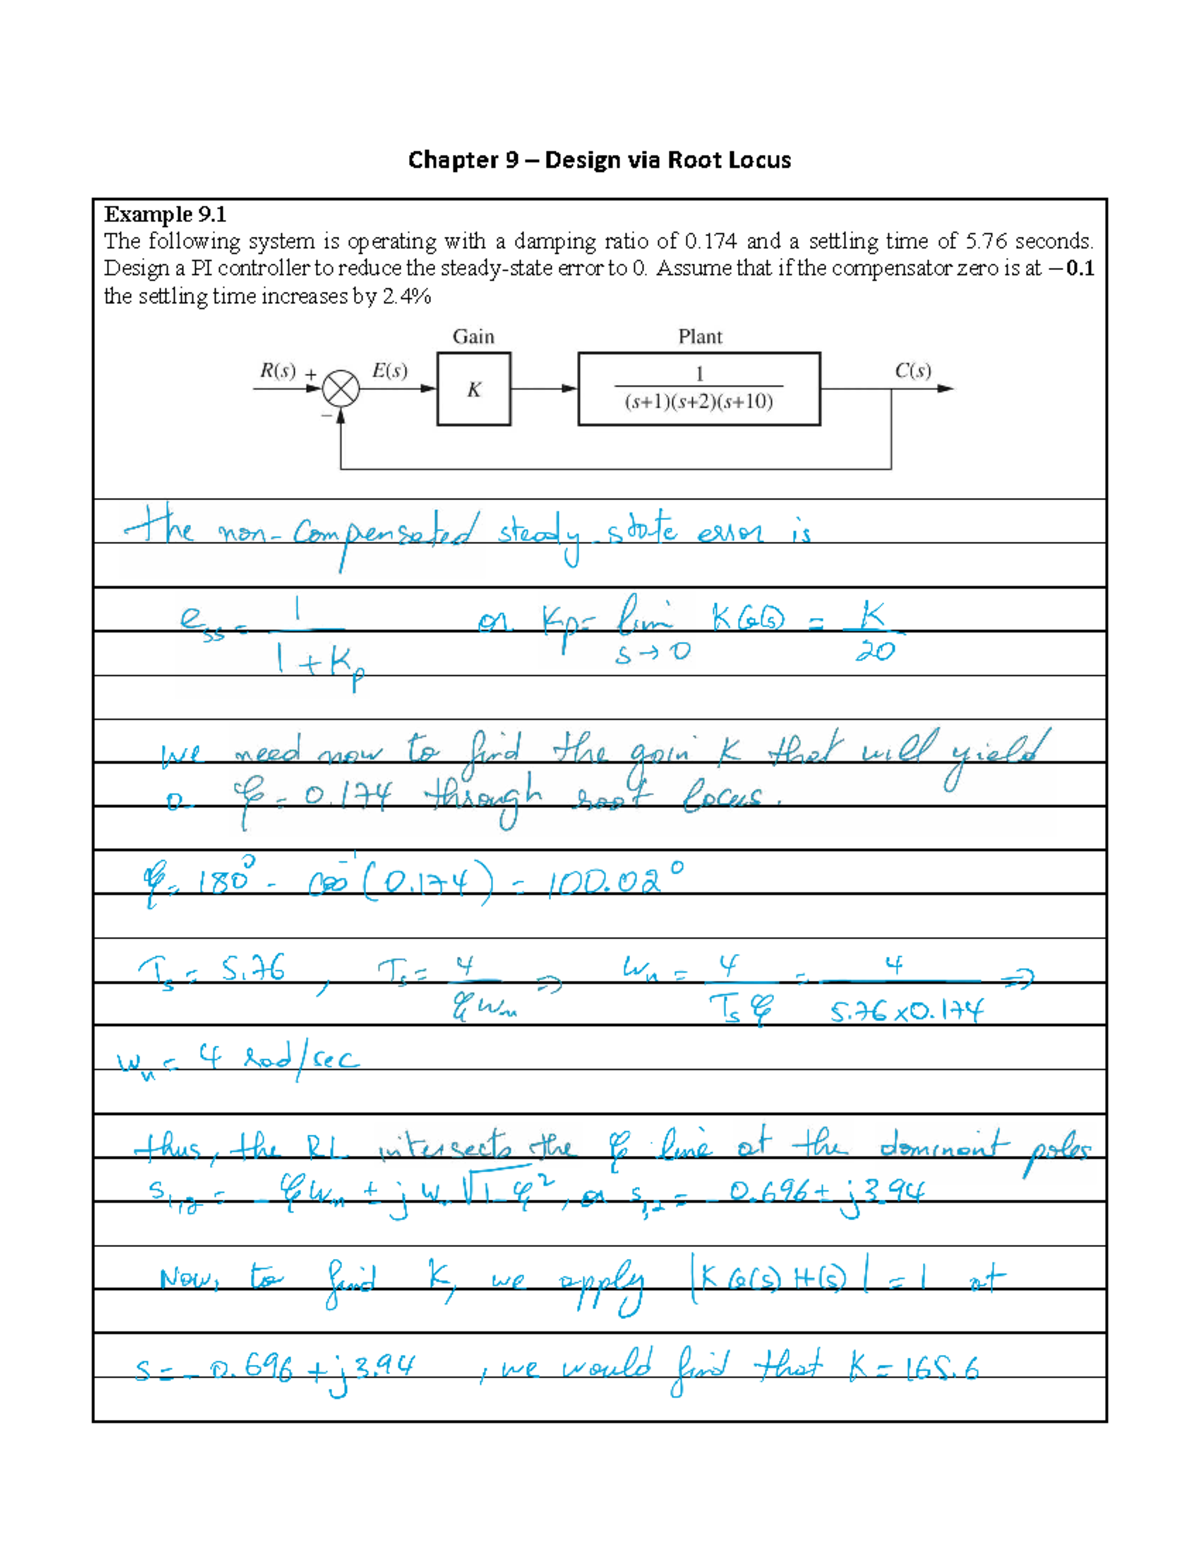 Chapter 9 – Design via Root Locus
Example 9.1
The following system is operating with a damping ratio of 0.174 and a settling time of 5.76 seconds.
Design a PI controller to reduce the steady-state error to 0. Assume that if the compensator zero is at −0.1
the settling time increases by 2.4%
Gain Plant
R(s) + E(s) K 1 C(s)
(s+1)(s+2)(s+10)
−
the non-compensated steady-state error is
e_ss = 1/(1+Kp) or Kp = lim s→0 KG(s) = K/20
We need now to find the gain K that will yield
a ξ = 0.174 through root locus.
ξ = 180° - cos⁻¹(0.174) = 100.02°
Ts = 5.76, Ts = 4/(ξ wn) => wn = 4/(Ts ξ) = 4/(5.76x0.174) =>
wn = 4 rad/sec
thus, the RL intersects the ξ line at the dominant poles
s1,2 = -ξ wn ± j w √(1-ξ²), or s1,2 = -0.696 ± j3.94
Now, to find K, we apply |KG(s)H(s)| = 1 at
s = -0.696 + j3.94, we would find that K = 165.6